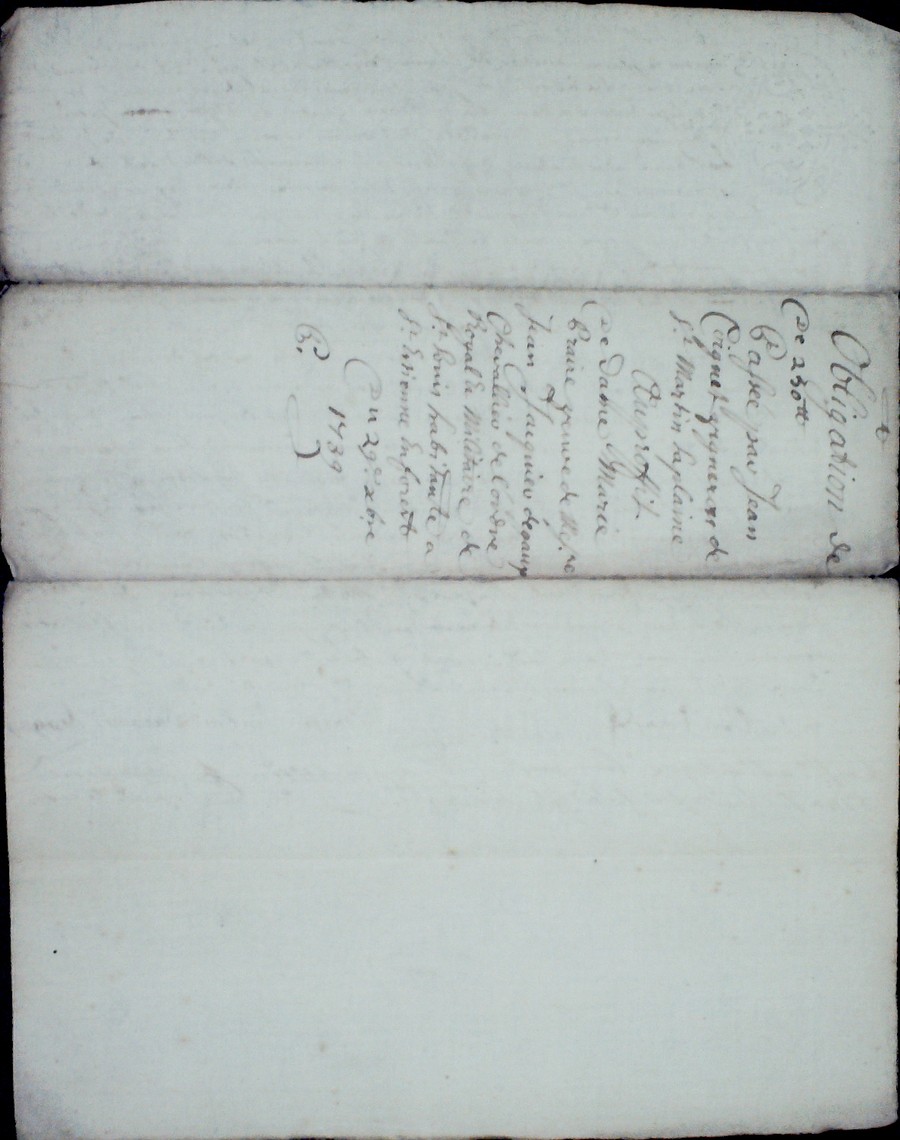 Obligation de
De 230tt
Passée par Jean
de
St Martin la plaine
Au profit
De Dame Marie
Praire veuve de
Jean Jacquier
Chevalier de Lordre
Royal & Militaire de
St Louis habitante a
St Etienne En forest
Du 29e xbre
1739